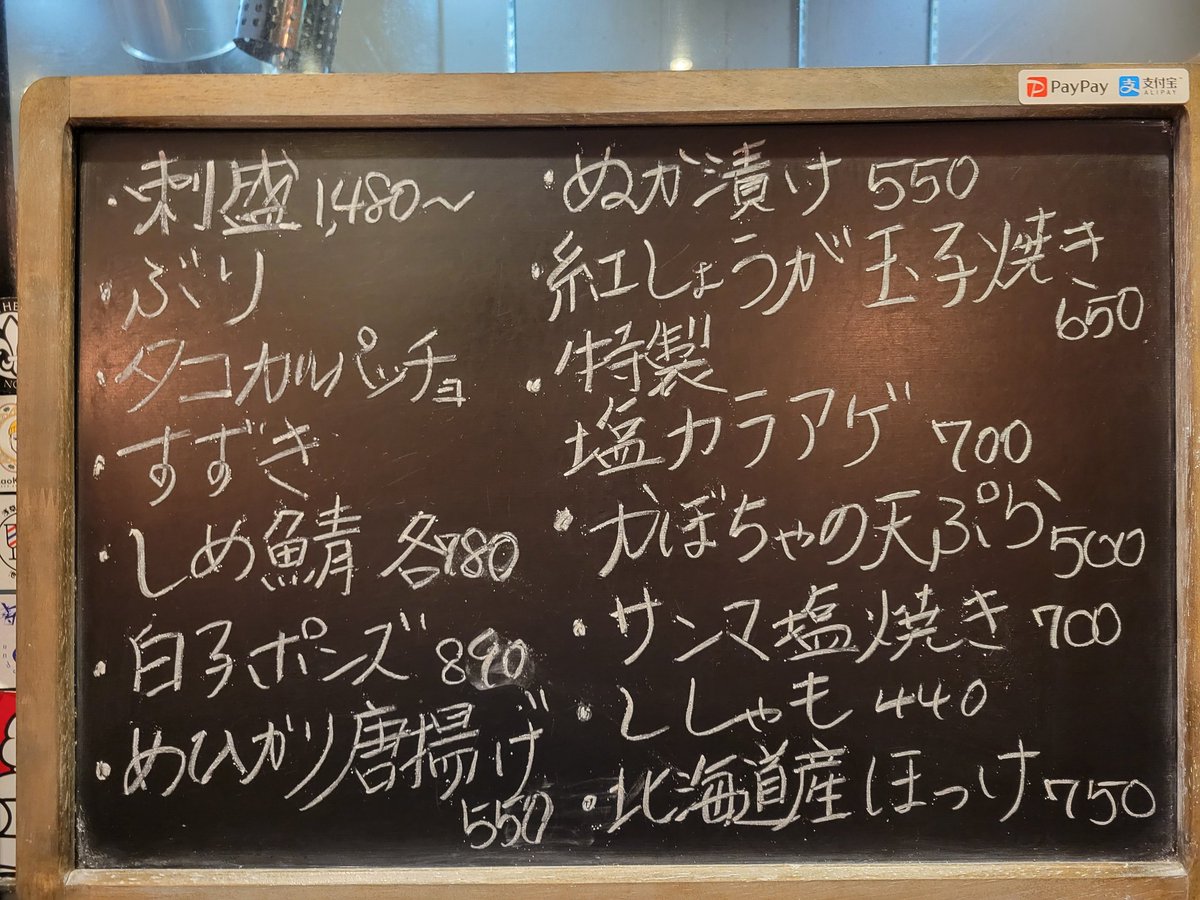 PayPay 支付宝 ALIPAY
・刺盛 1,480〜
・ぶり
・タコカルパッチョ
・すずき
・しめ鯖 各780
・白子ポンズ 890
・めひかり唐揚げ
550
・ぬか漬け 550
・紅しょうが玉子焼き
650
・特製
塩カラアゲ 700
・かぼちゃの天ぷら 500
・サンマ塩焼き 700
・ししゃも 440
・北海道産ほっけ 750